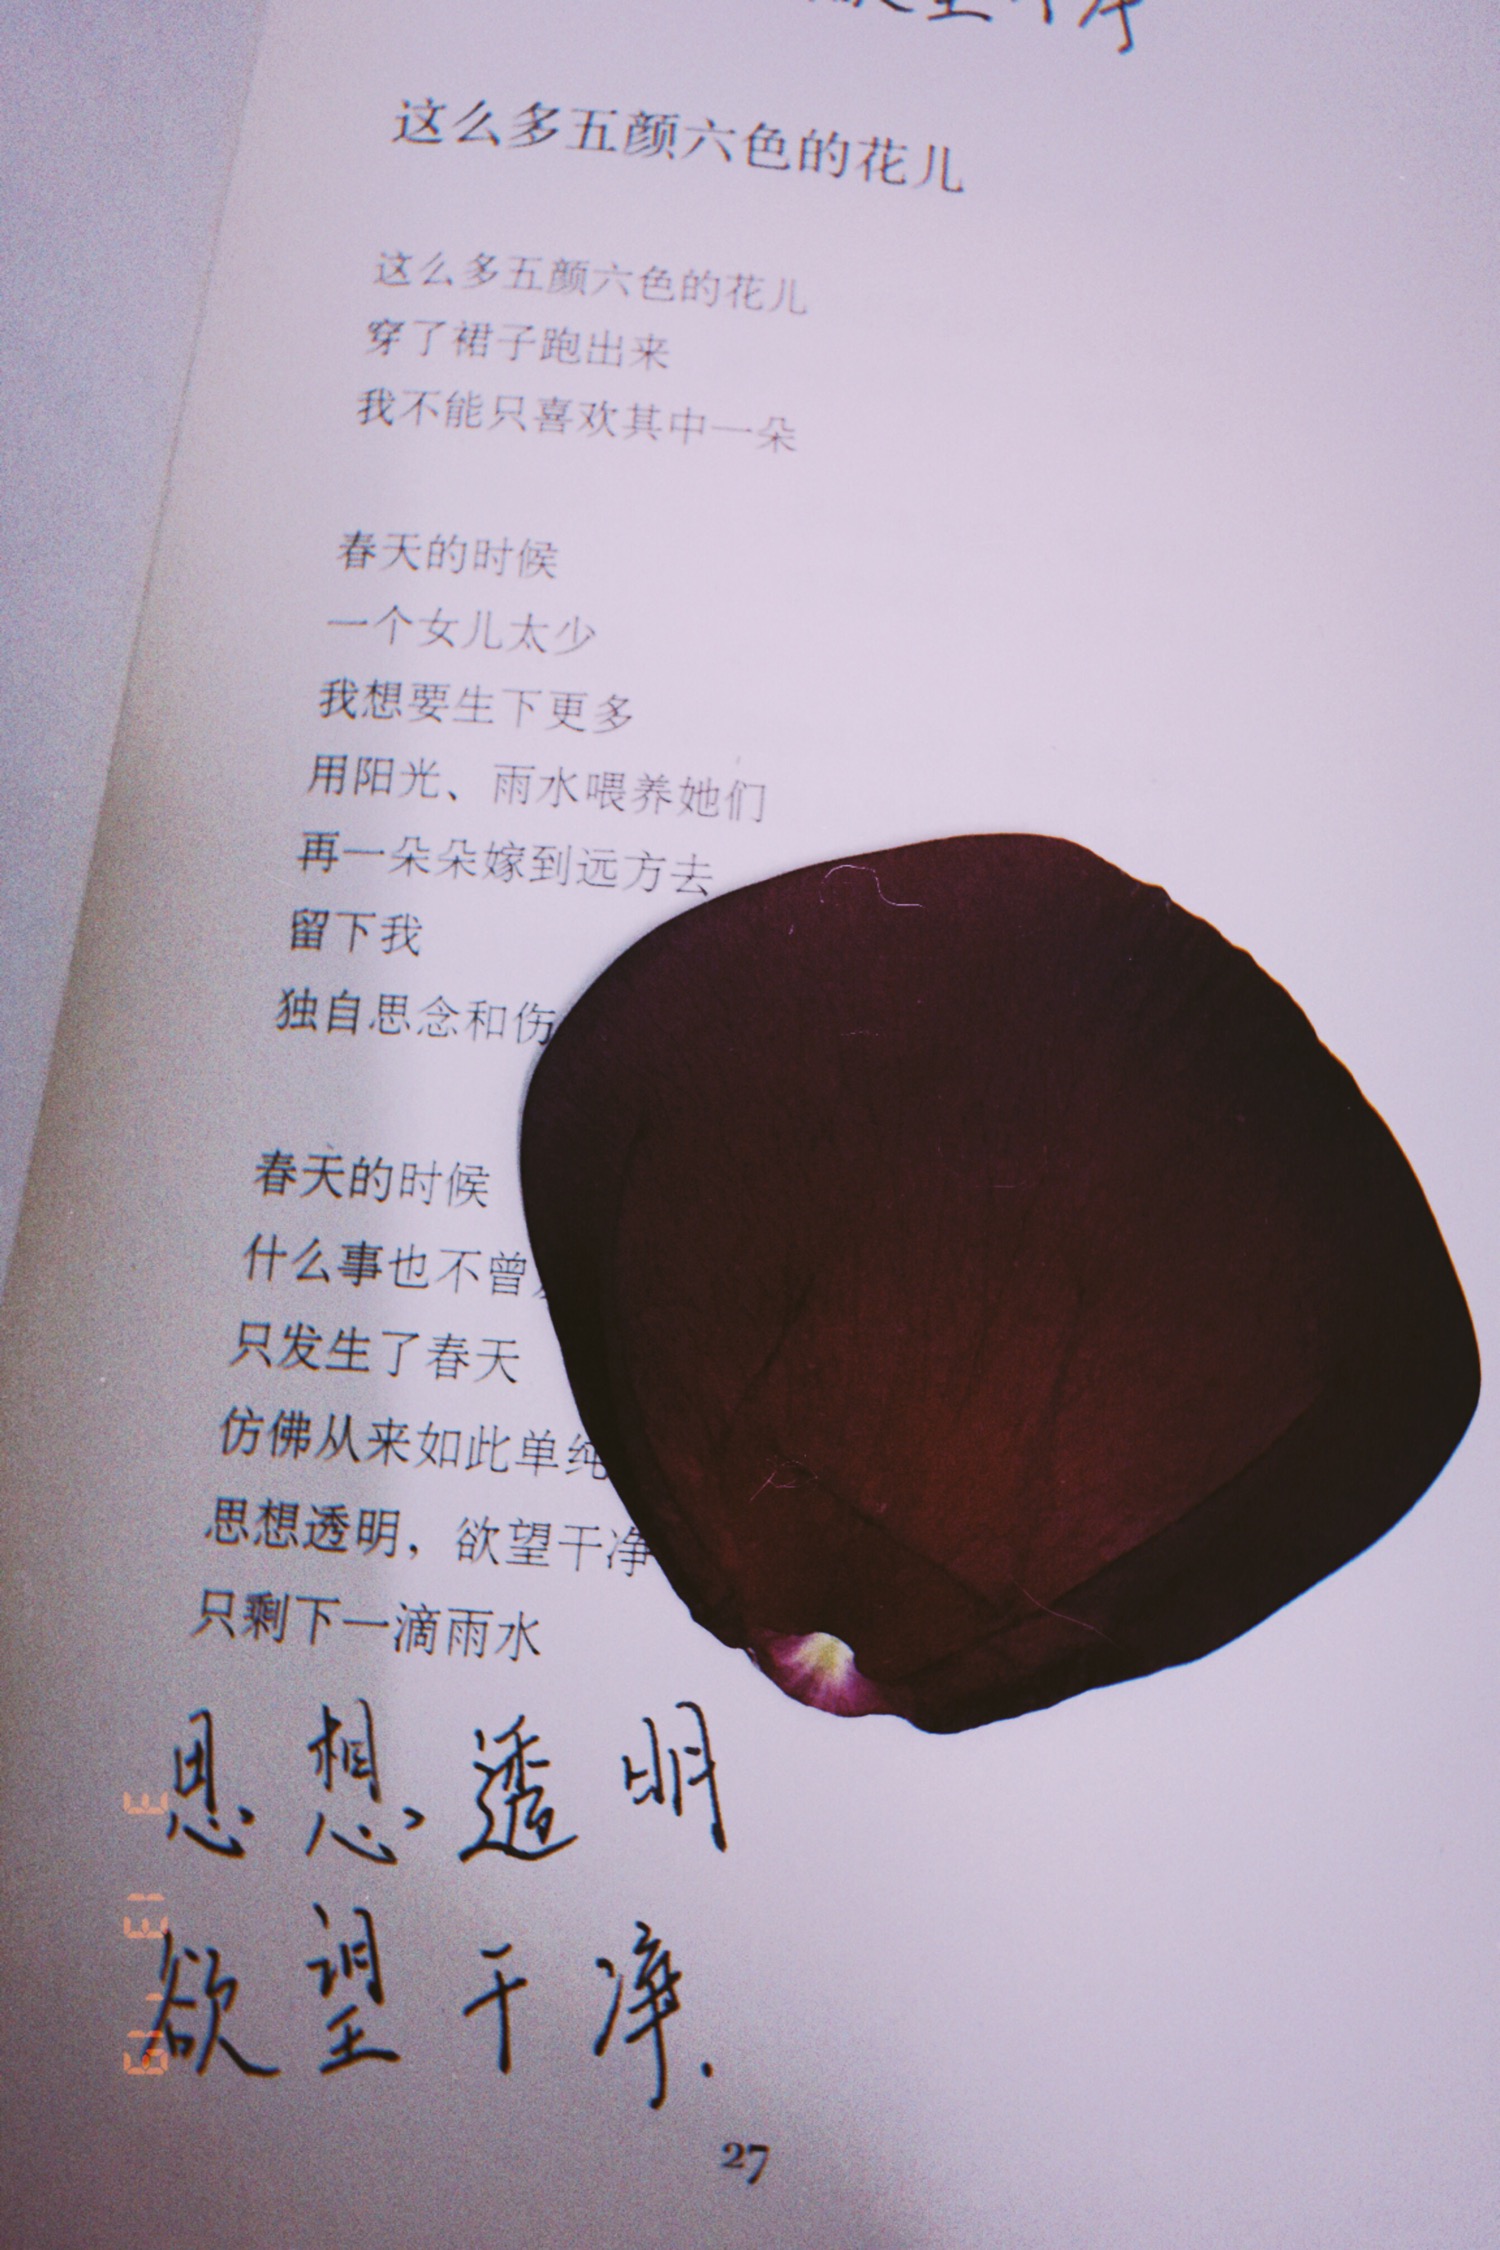 这么多五颜六色的花儿
这么多五颜六色的花儿
穿了裙子跑出来
我不能只喜欢其中一朵
春天的时候
一个女儿太少
我想要生下更多
用阳光、雨水喂养她们
再一朵朵嫁到远方去
留下我
独自思念和伤
春天的时候
什么事也不曾
只发生了春天
仿佛从来如此单纯
思想透明，欲望干净
只剩下一滴雨水
思想透明
欲望干净.
27